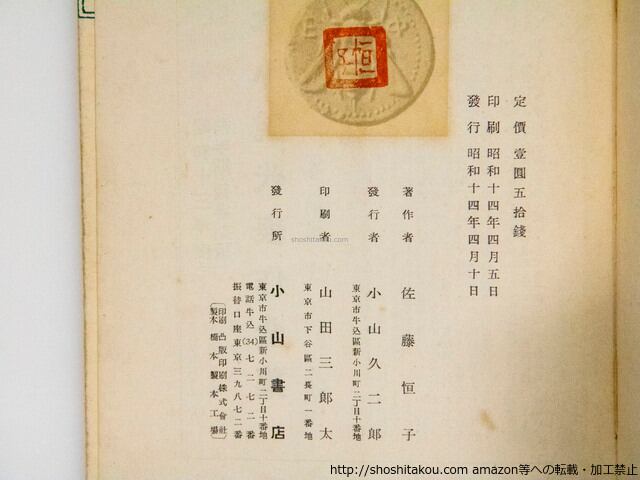 定價 壹圓五拾錢
印刷 昭和十四年四月五日
發行 昭和十四年四月十日
著作者 佐藤恒子
發行者 小山久二郎
東京市牛込區新小川町二丁目十番地
印刷者 山田三郎太
東京市下谷區二長町一番地
發行所 小山書店
東京市牛込區新小川町二丁目十番地
電話牛込(34)七二七二番
振替口座東京三九八七二番
印刷 凸版印刷株式會社
製本 橋本製本工場
shoshitakou.com
http://shoshitakou.com amazon等への転載・加工禁止